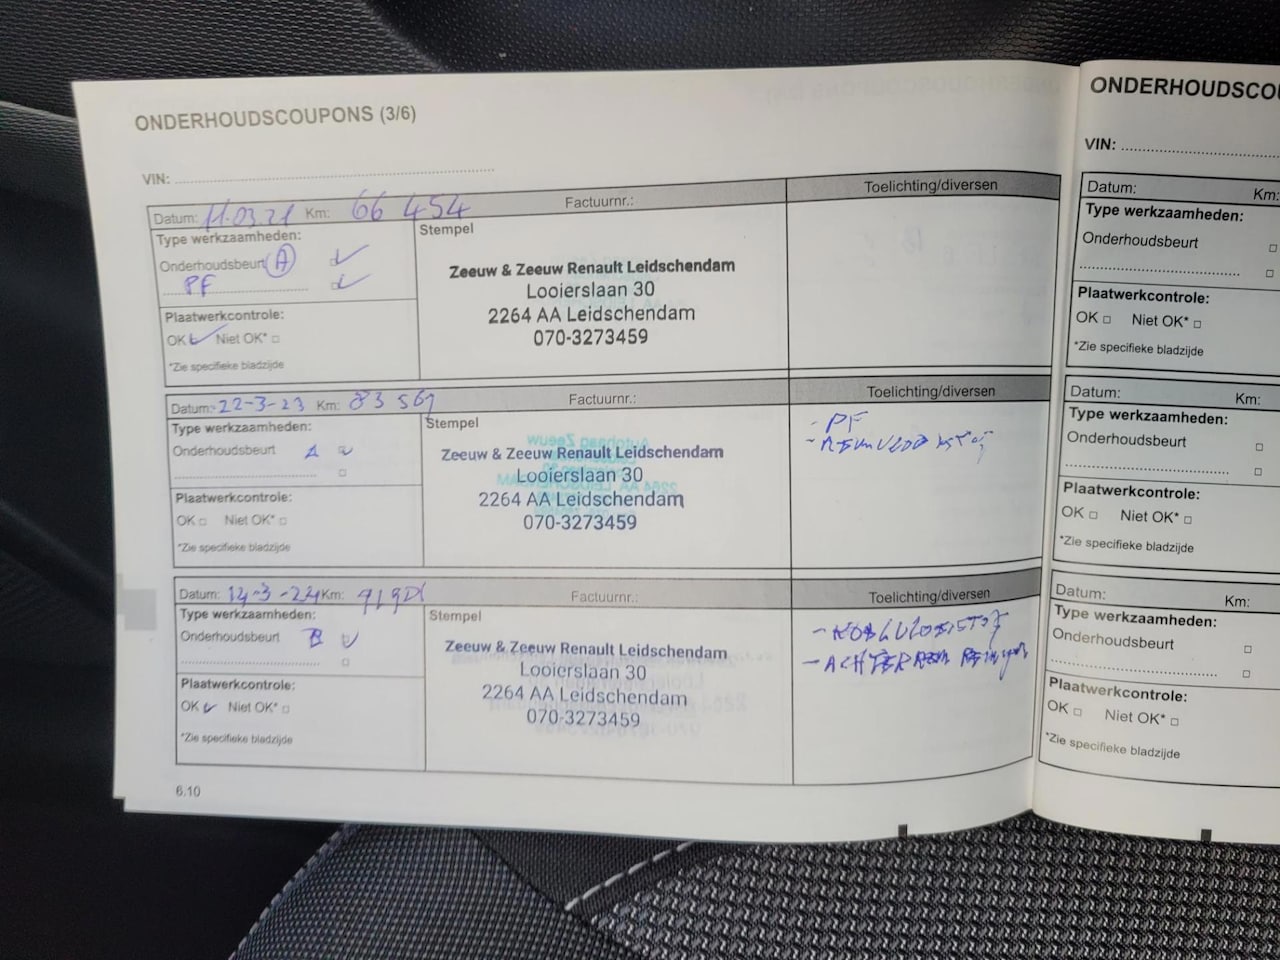 ONDERHOUDSCOUPONS (3/6)
VIN:
Datum: 11.03.21 Km: 66 454 Factuurnr.: Toelichting/diversen
Type werkzaamheden:
Stempel
Onderhoudsbeurt A
PF
Zeeuw & Zeeuw Renault Leidschendam
Looierslaan 30
2264 AA Leidschendam
070-3273459
Plaatwerkcontrole:
OK Niet OK*
*Zie specifieke bladzijde
Datum: 22-3-23 Km: 83 561 Factuurnr.: Toelichting/diversen
Type werkzaamheden:
Stempel
Onderhoudsbeurt A
Zeeuw & Zeeuw Renault Leidschendam
Looierslaan 30
2264 AA Leidschendam
070-3273459
- PF
- REMVLOEISTOF
Plaatwerkcontrole:
OK Niet OK*
*Zie specifieke bladzijde
Datum: Km: Factuurnr.: Toelichting/diversen
Type werkzaamheden:
Stempel
Onderhoudsbeurt B
Zeeuw & Zeeuw Renault Leidschendam
Looierslaan 30
2264 AA Leidschendam
070-3273459
- KOELVLOEISTOF
- ACHTERREM
Plaatwerkcontrole:
OK Niet OK*
*Zie specifieke bladzijde
6.10
ONDERHOUDSCOU
VIN:
Datum: Km:
Type werkzaamheden:
Onderhoudsbeurt
Plaatwerkcontrole:
OK Niet OK*
*Zie specifieke bladzijde
Datum: Km:
Type werkzaamheden:
Onderhoudsbeurt
Plaatwerkcontrole:
OK Niet OK*
*Zie specifieke bladzijde
Datum: Km:
Type werkzaamheden:
Onderhoudsbeurt
Plaatwerkcontrole:
OK Niet OK*
*Zie specifieke bladzijde